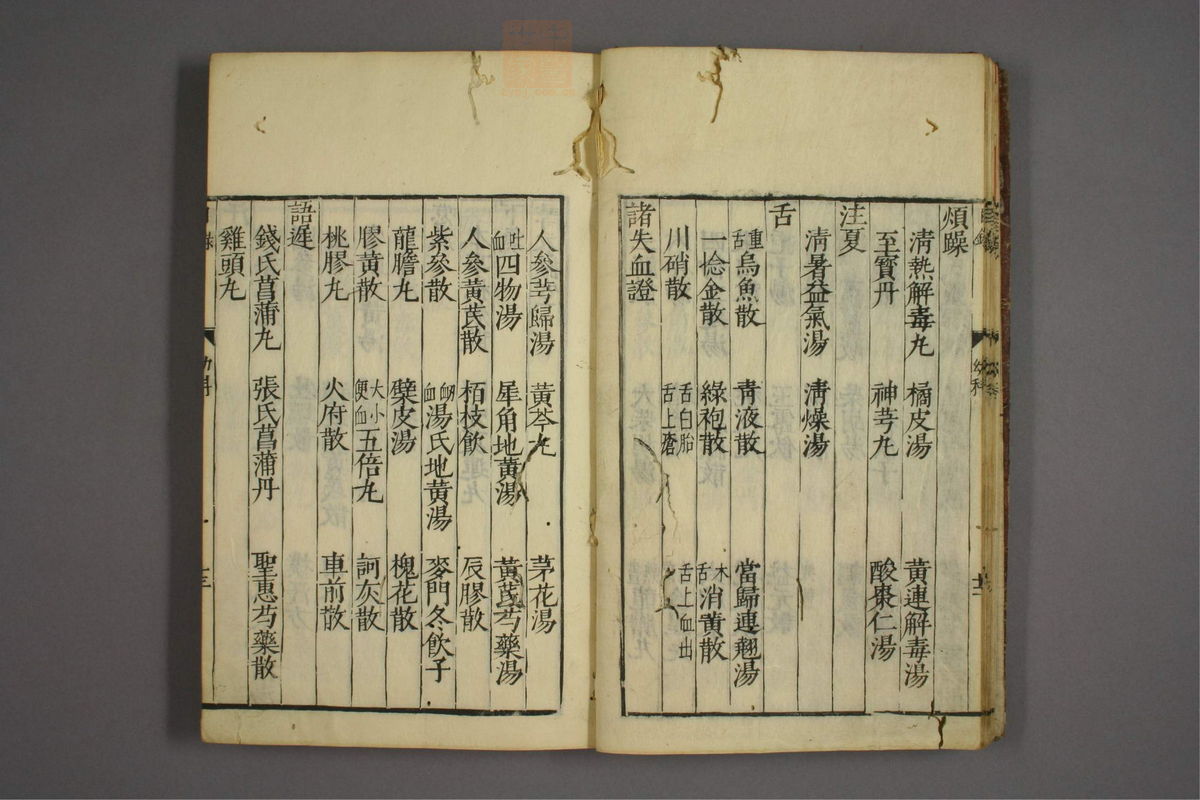 煩躁
清熱解毒丸 橘皮湯 黃連解毒湯
至寶丹 神芎丸 酸棗仁湯
注夏
清暑益氣湯 清燥湯
舌
重舌烏魚散 青液散 當歸連翹湯
一捻金散 綠袍散 木舌消黃散
川硝散 舌白胎舌上瘡 舌上血出
諸失血證
人參芎歸湯 黃芩丸 茅花湯
吐血四物湯 犀角地黃湯 黃芪芍藥湯
人參黃芪散 栢枝飲 辰膠散
紫參散 衂血湯氏地黃湯 麥門冬飲子
龍膽丸 檗皮湯 槐花散
膠黃散 大小便血五倍丸 訶灰散
桃膠丸 火府散 車前散
語遲
錢氏菖蒲丸 張氏菖蒲丹 聖惠芍藥散
雞頭丸